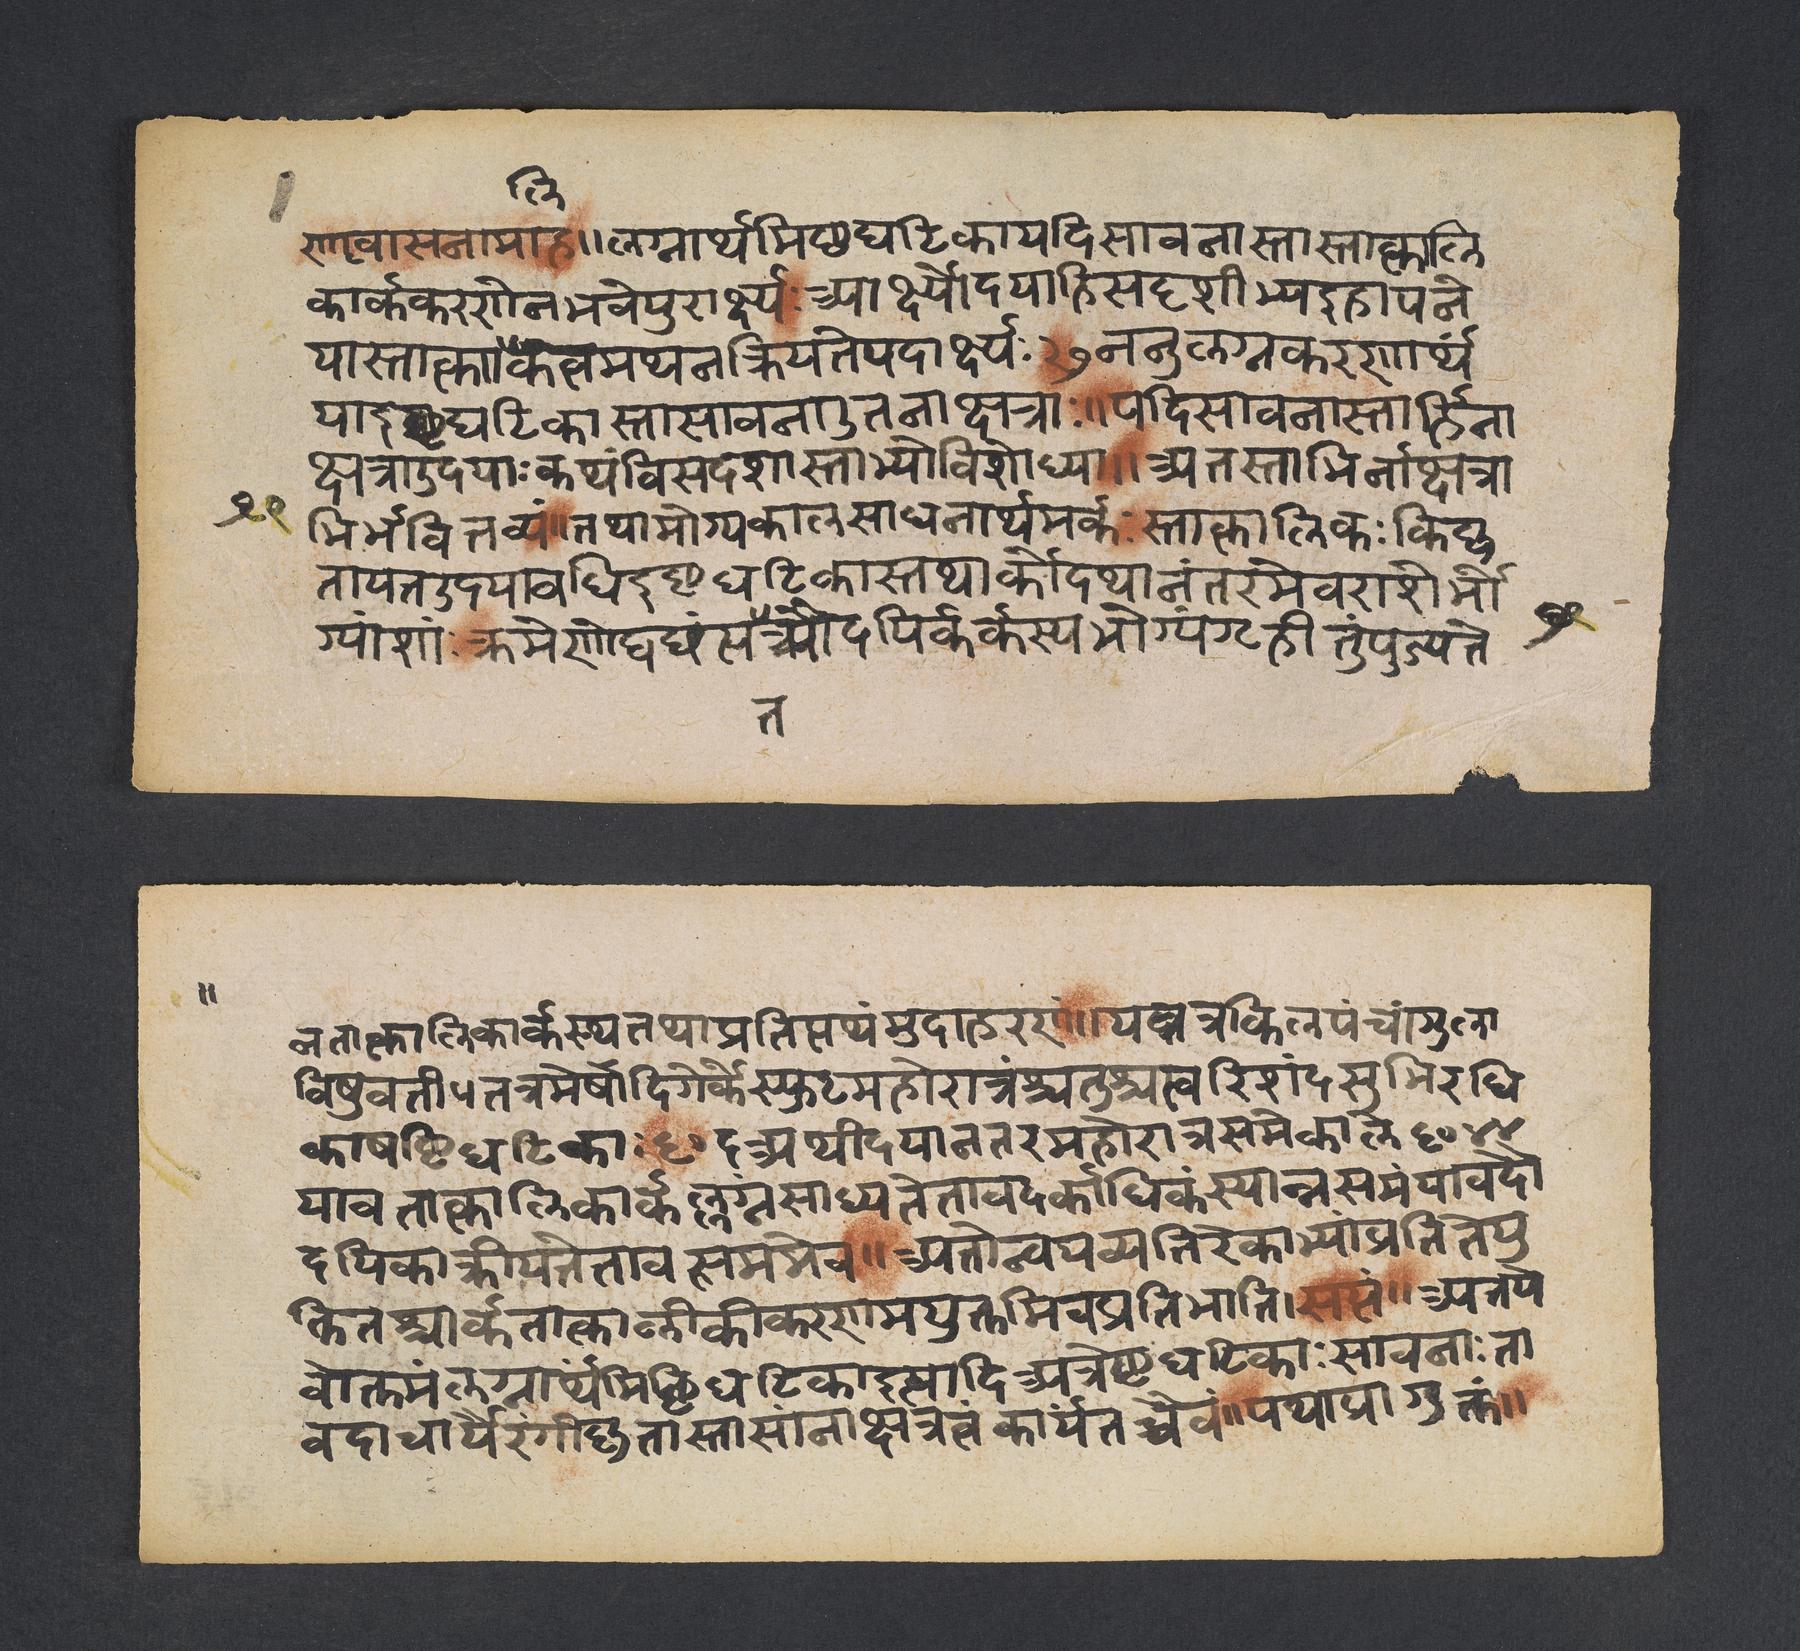 लि
णवासनामाह॥लग्नार्थमिष्टघटिकायदिसावनास्तास्तात्कालि
कार्ककरणेनभवेपुरार्क्ष्यः आर्क्ष्योदयाहिसदृशीभ्यइहापने
यास्तात्काकत्वमथनक्रियतेयदार्क्ष्यः २७ननुलग्नकरणार्थं
याइष्टघटिकास्तासावनाउतनाक्षत्राः॥यदिसावनास्तार्हिना
क्षत्राउदयाःकथंविसदशास्ताभ्योविशोध्या॥अतस्ताभिर्नाक्षत्रा
भिर्भवितव्यं॥तथाभोग्यकालसाधनार्थमर्कःस्तात्कालिकःकिष्टु
तायतउदयावधिइष्टघटिकास्तथार्कोदयानंतरमेवराशेर्भो
ग्यांशांःक्रमेणोघघंसऔदयिर्ककर्कस्यभोग्यंग्रहीतुंयुज्यते
२१
२१
त
नतात्कालिकार्कस्यतथाप्रतिपत्यंमुदाहरणं॥यस्मत्रकिलपंचांगुला
विषुवती५तत्रमेर्षोदिगेर्केस्फुटमहोरात्रंश्चतुश्चत्वरिशंदसुभिरधि
काषष्टिघटिकाः६०दअर्थोदयानतरमहोरात्रसमेकाले६०४४
यावतात्कालिकार्केल्लग्नंसाध्यतेतावदर्काधिकंस्यान्नसमंयावदौ
दयिकाक्रीयतेतावत्सममेव॥अतोन्वयव्यतिरेकाभ्यांप्रतितेपु
क्तितश्चार्केतात्काल्कीकरणमयुक्तमिवप्रतिभाति।सत्तं॥अत्रप
वोक्तमंलग्नार्थंमिष्टिघटिकाइत्यादिअत्रेष्टघटिकाःसावनाःता
वदाचार्यैरंगीष्टतास्तासांनाक्षत्रत्वंकार्यंतच्चैवं॥यथाप्रागुक्तं॥
॥